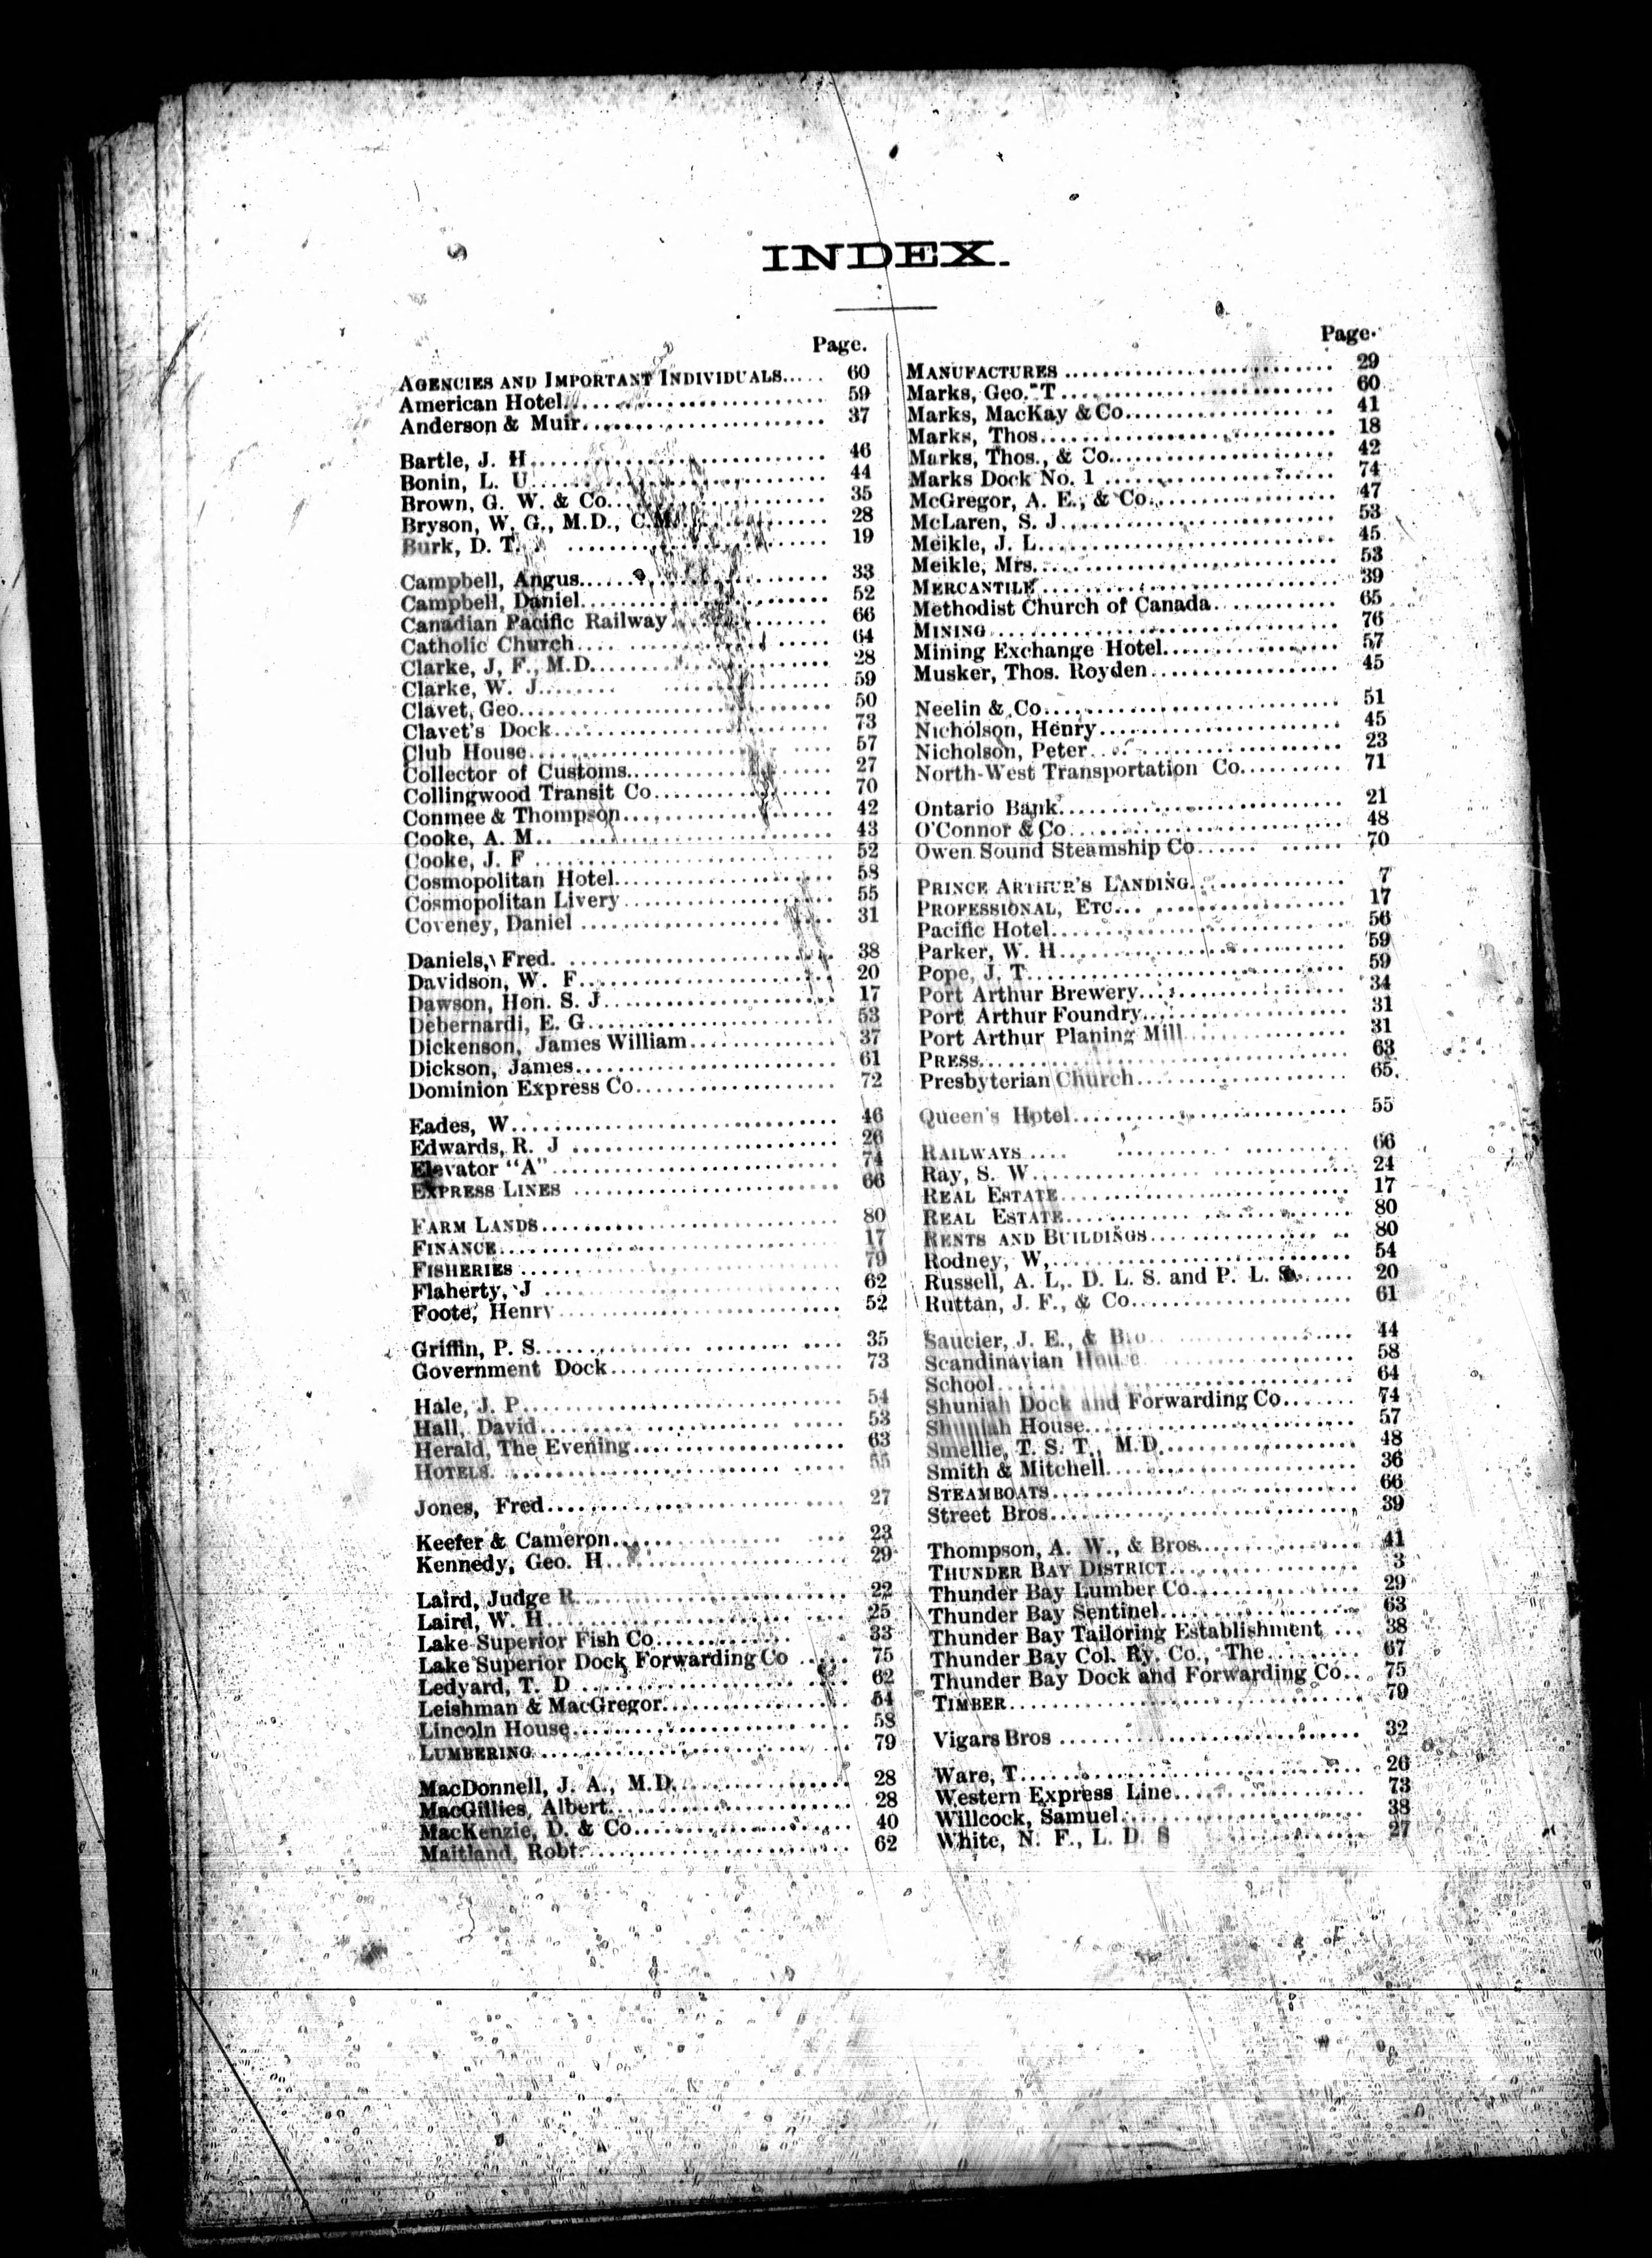 INDEX.
Page.
AGENCIES AND IMPORTANT INDIVIDUALS..... 60
American Hotel........................ 59
Anderson & Muir........................ 37
Bartle, J. H........................ 46
Bonin, L. U........................ 44
Brown, G. W. & Co........................ 35
Bryson, W. G., M.D., C.M........................ 28
Burk, D. T........................ 19
Campbell, Angus........................ 33
Campbell, Daniel........................ 52
Canadian Pacific Railway........................ 66
Catholic Church........................ 64
Clarke, J. F., M.D........................ 28
Clarke, W. J........................ 59
Clavet, Geo........................ 50
Clavet's Dock........................ 73
Club House........................ 57
Collector of Customs........................ 27
Collingwood Transit Co........................ 70
Conmee & Thompson........................ 42
Cooke, A. M........................ 43
Cooke, J. F ........................ 52
Cosmopolitan Hotel........................ 58
Cosmopolitan Livery........................ 55
Coveney, Daniel ........................ 31
Daniels, Fred. ........................ 38
Davidson, W. F........................ 20
Dawson, Hon. S. J........................ 17
Debernardi, E. G........................ 53
Dickenson, James William........................ 37
Dickson, James........................ 61
Dominion Express Co........................ 72
Eades, W........................ 46
Edwards, R. J ........................ 26
Elevator "A"........................ 74
EXPRESS LINES ........................ 66
FARM LANDS........................ 80
FINANCE........................ 17
FISHERIES ........................ 79
Flaherty, J ........................ 62
Foote, Henry........................ 52
Griffin, P. S........................ 35
Government Dock........................ 73
Hale, J. P........................ 54
Hall, David........................ 53
Herald, The Evening........................ 63
HOTELS........................ 55
Jones, Fred........................ 27
Keefer & Cameron........................ 23
Kennedy, Geo. H........................ 29
Laird, Judge R........................ 22
Laird, W. H........................ 25
Lake Superior Fish Co........................ 33
Lake Superior Dock Forwarding Co ..... 75
Ledyard, T. D ........................ 62
Leishman & MacGregor........................ 54
Lincoln House........................ 58
LUMBERING........................ 79
MacDonnell, J. A., M.D........................ 28
MacGillies, Albert........................ 28
MacKenzie, D. & Co........................ 40
Maitland, Robt........................ 62
Page.
MANUFACTURES ........................ 29
Marks, Geo. T........................ 60
Marks, MacKay & Co........................ 41
Marks, Thos........................ 18
Marks, Thos., & Co........................ 42
Marks Dock No. 1 ........................ 74
McGregor, A. E., & Co........................ 47
McLaren, S. J........................ 53
Meikle, J. L........................ 45
Meikle, Mrs........................ 53
MERCANTILE........................ 39
Methodist Church of Canada........................ 65
MINING........................ 76
Mining Exchange Hotel........................ 57
Musker, Thos. Royden........................ 45
Neelin & Co........................ 51
Nicholson, Henry........................ 45
Nicholson, Peter........................ 23
North-West Transportation Co.......... 71
Ontario Bank........................ 21
O'Connor & Co........................ 48
Owen Sound Steamship Co...... ...... 70
PRINCE ARTHUR'S LANDING........................ 7
PROFESSIONAL, ETC........................ 17
Pacific Hotel........................ 56
Parker, W. H........................ 59
Pope, J. T........................ 59
Port Arthur Brewery........................ 34
Port Arthur Foundry........................ 31
Port Arthur Planing Mill........................ 31
PRESS........................ 63
Presbyterian Church........................ 65
Queen's Hotel........................ 55
RAILWAYS .... ........................ 66
Ray, S. W........................ 24
REAL ESTATE........................ 17
REAL ESTATE........................ 80
RENTS AND BUILDINGS........................ 80
Rodney, W,........................ 54
Russell, A. L,. D. L. S. and P. L. S...... 20
Ruttan, J. F., & Co........................ 61
Saucier, J. E., & Bro........................ 44
Scandinavian House........................ 58
School........................ 64
Shuniah Dock and Forwarding Co....... 74
Shuniah House........................ 57
Smellie, T. S. T., M.D........................ 48
Smith & Mitchell........................ 36
STEAMBOATS........................ 66
Street Bros........................ 39
Thompson, A. W., & Bros........................ 41
THUNDER BAY DISTRICT........................ 3
Thunder Bay Lumber Co........................ 29
Thunder Bay Sentinel........................ 63
Thunder Bay Tailoring Establishment ... 38
Thunder Bay Col. Ry. Co., The......... 67
Thunder Bay Dock and Forwarding Co... 75
TIMBER........................ 79
Vigars Bros ........................ 32
Ware, T........................ 26
Western Express Line........................ 73
Willcock, Samuel........................ 38
White, N. F., L. D. S ........................ 27